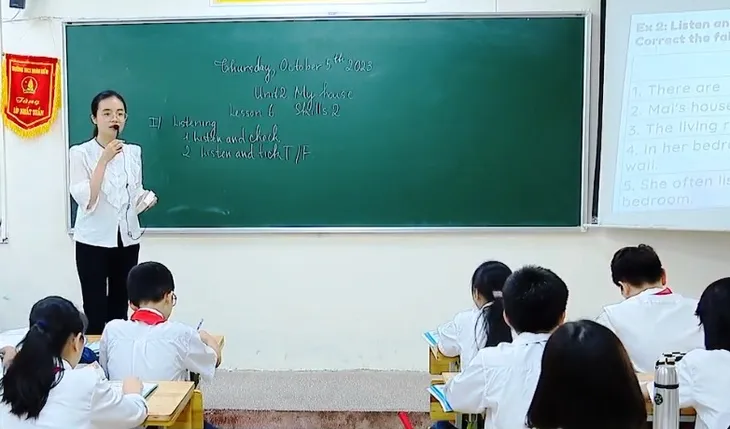 Thursday, October 5th 2023
Unit 2 My house
Lesson 6 Skills 2
II/ Listening
1 Listen and check
2 Listen and tick T/F
Tặng
LỚP NHẤT TUẦN
Ex 2: Listen an
Correct the fal
1. There are
2. Mai's house
3. The living r
4. In her bedr
wall.
5. She often lis
bedroom.